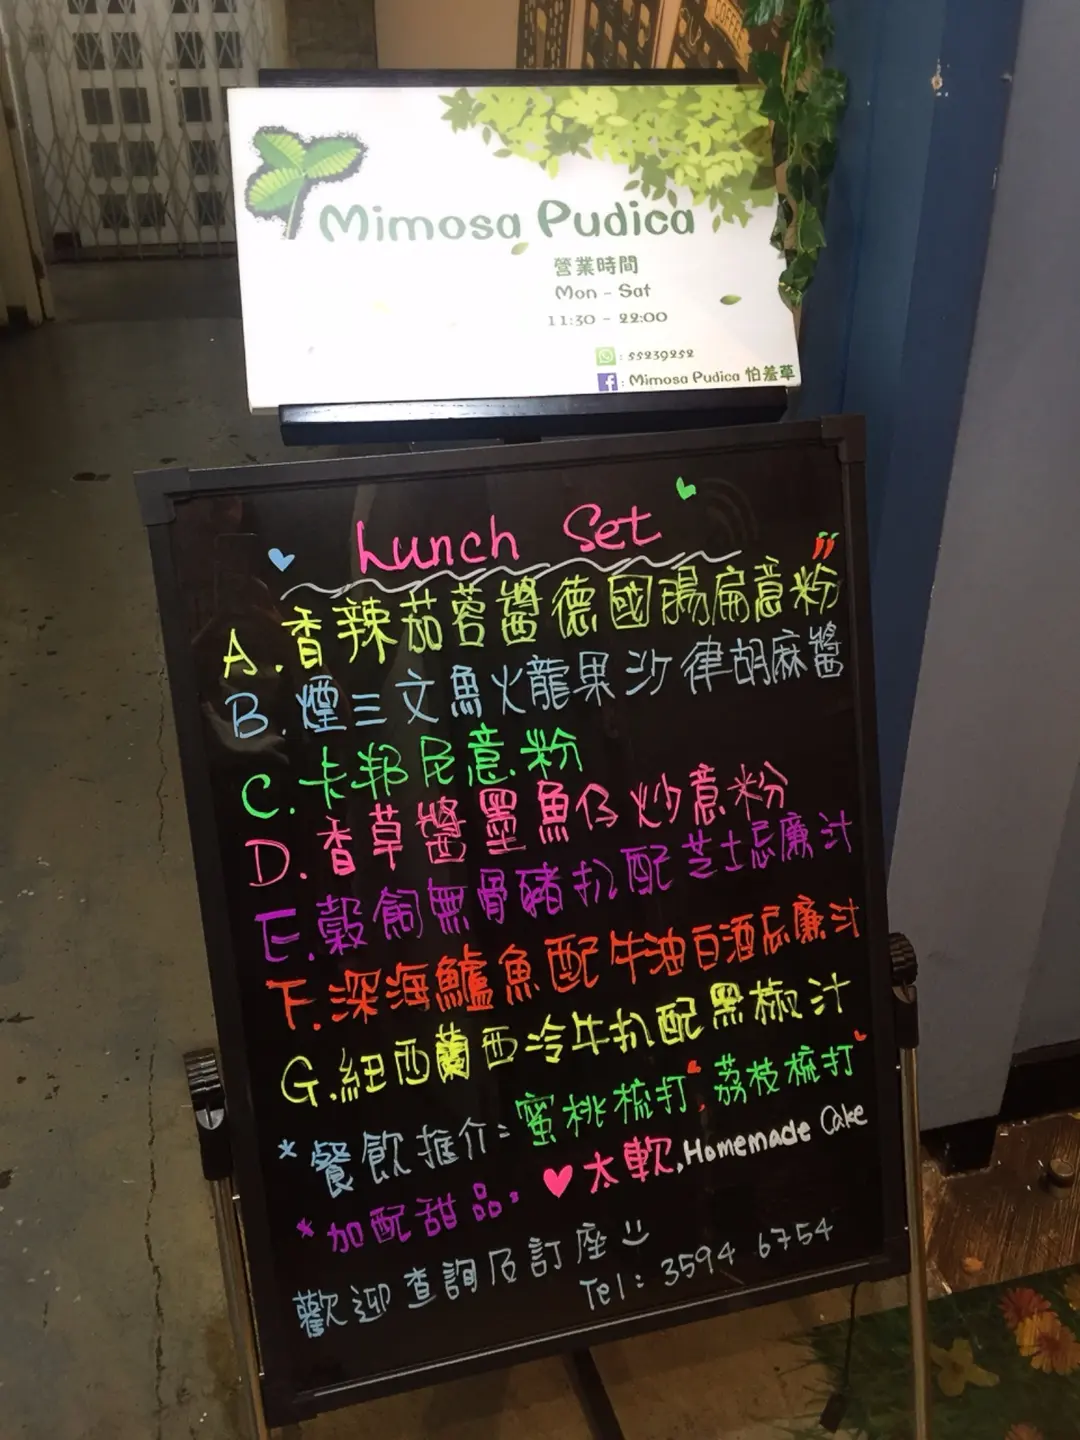 Mimosa Pudica
營業時間
Mon - Sat
11:30 - 22:00
: 55239252
: Mimosa Pudica 怕羞草
Lunch Set
A. 香辣茄蓉醬德國腸扁意粉
B. 煙三文魚火龍果沙律胡麻醬
C. 卡邦尼意粉
D. 香草醬墨魚仔炒意粉
E. 穀飼無骨豬扒配芝士忌廉汁
F. 深海鱸魚配牛油白酒忌廉汁
G. 紐西蘭西冷牛扒配黑椒汁
*餐飲推介: 蜜桃梳打, 荔枝梳打
*加配甜品, ♥ 太軟, Homemade Cake
歡迎查詢及訂座
Tel: 3594 6754